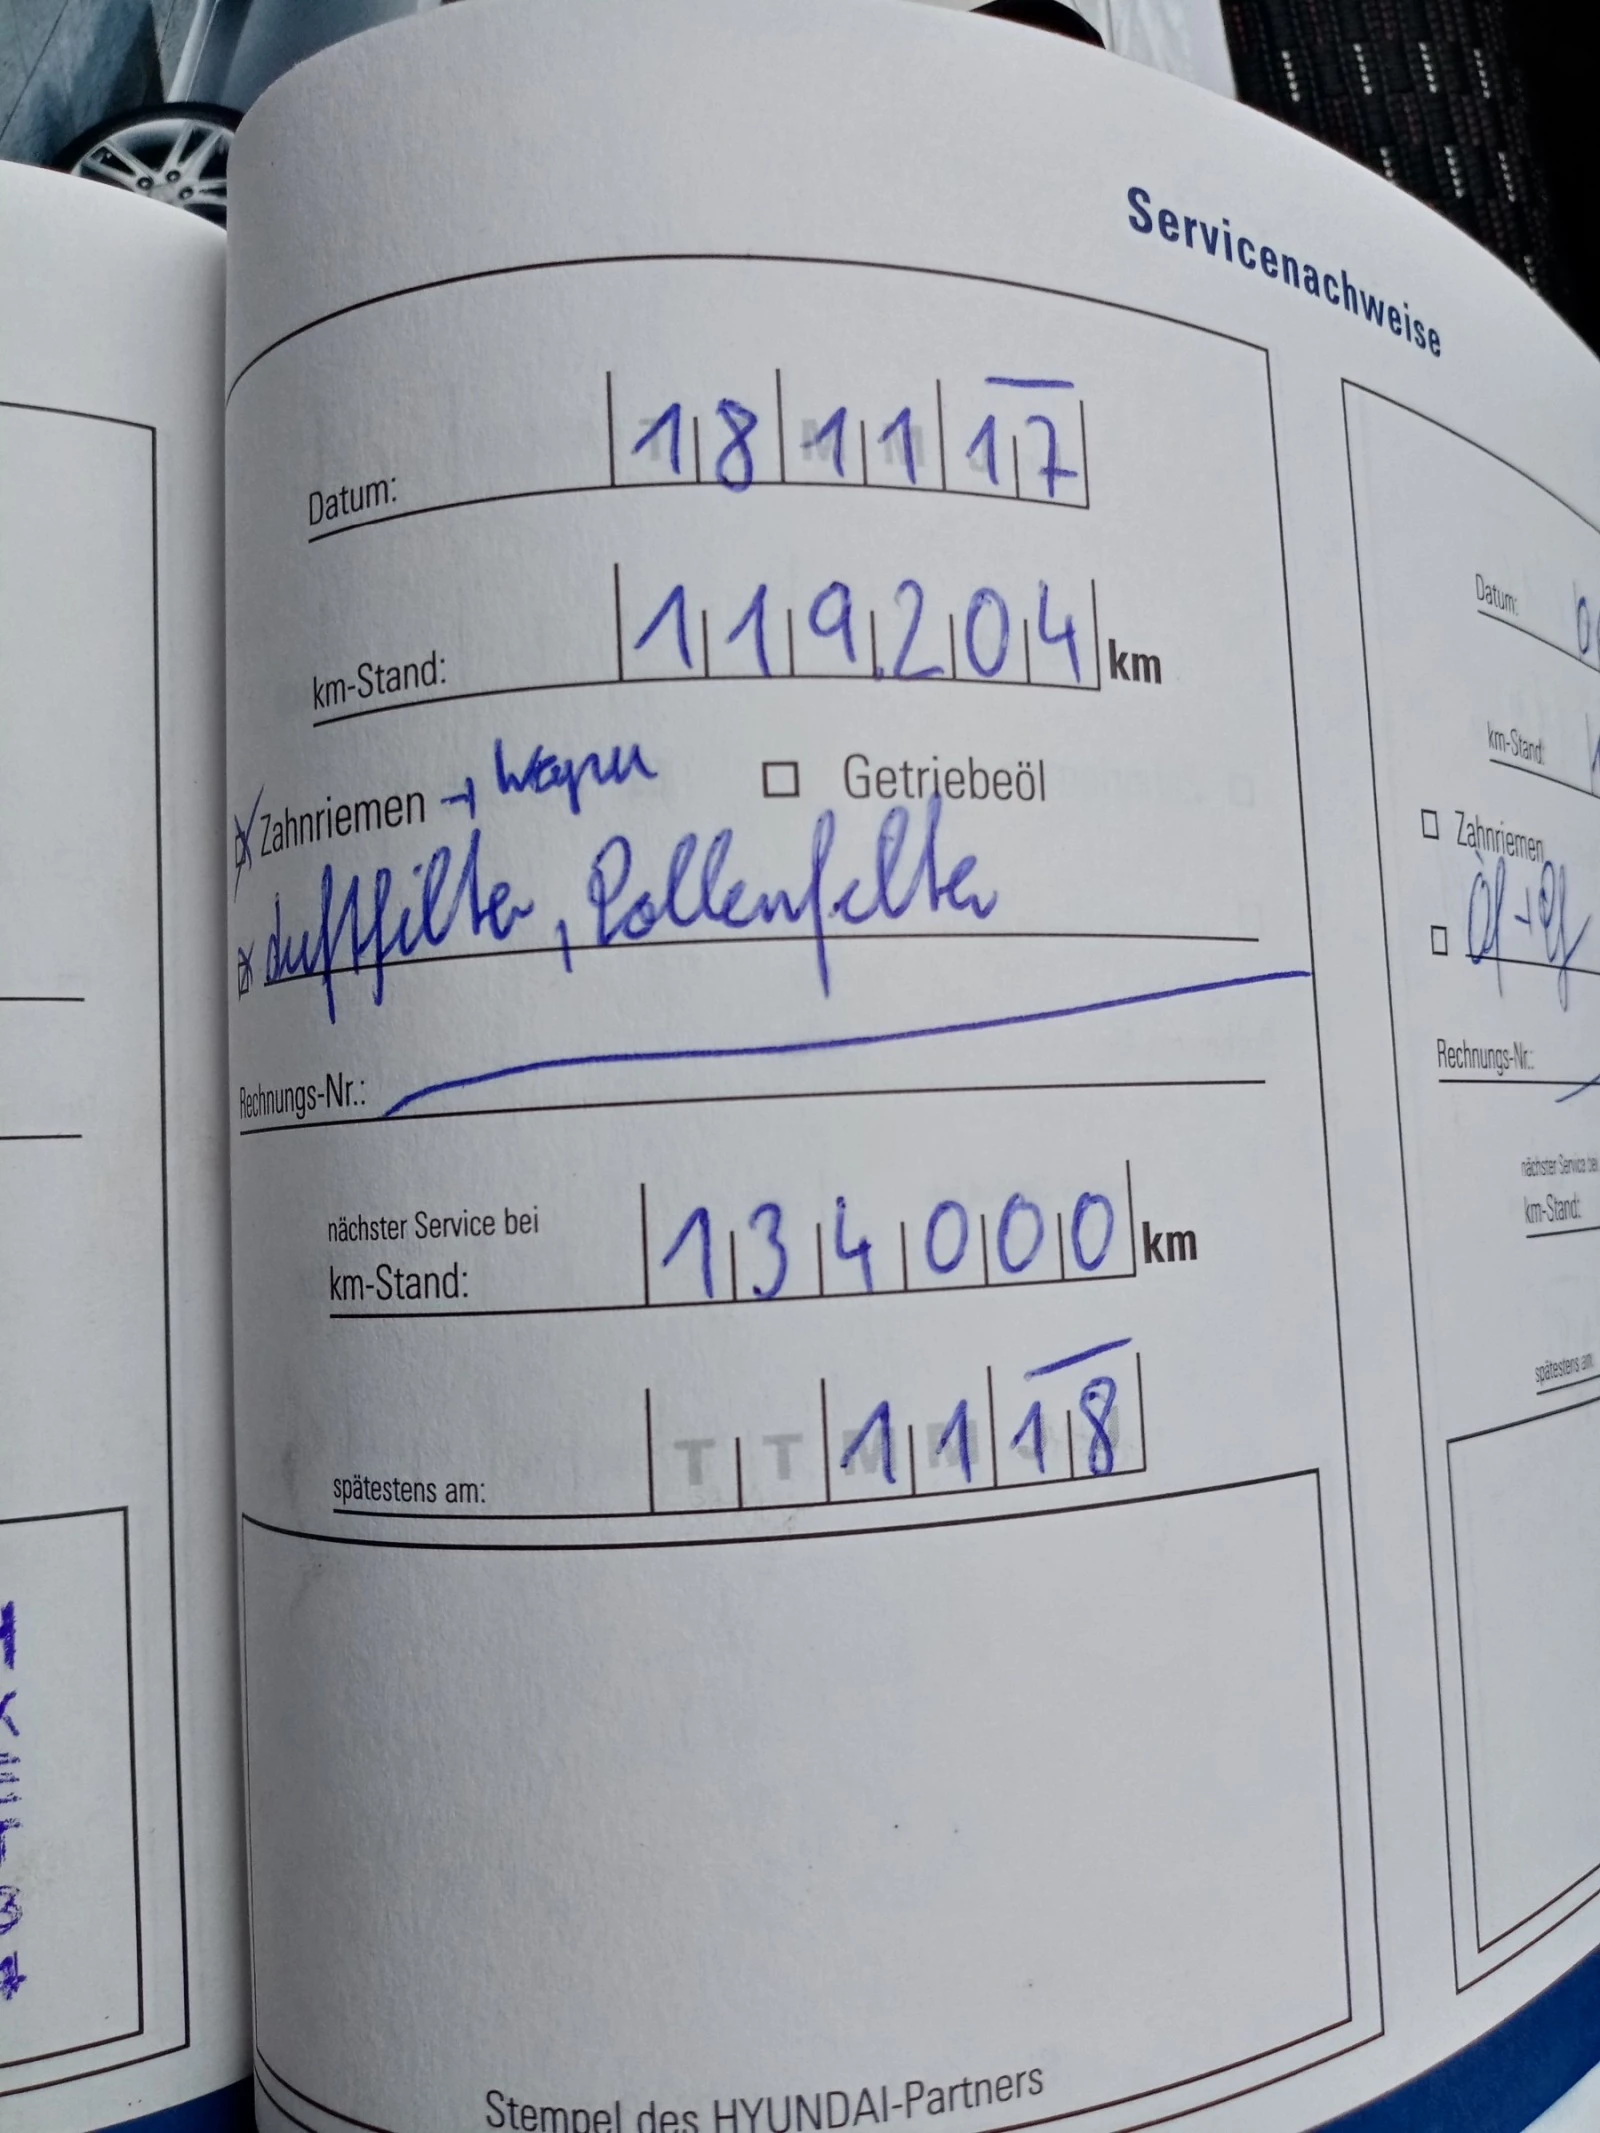 Servicenachweise
Datum: 18 11 17
km-Stand: 119.204 km
Zahnriemen → □ Getriebeöl
Luftfilter, Pollenfilter
Rechnungs-Nr.:
nächster Service bei
km-Stand: 134000 km
spätestens am: TT 11 18
Stempel des HYUNDAI-Partners
Datum:
km-Stand:
□ Zahnriemen
□
Rechnungs-Nr.:
nächster Service bei
km-Stand:
spätestens am: